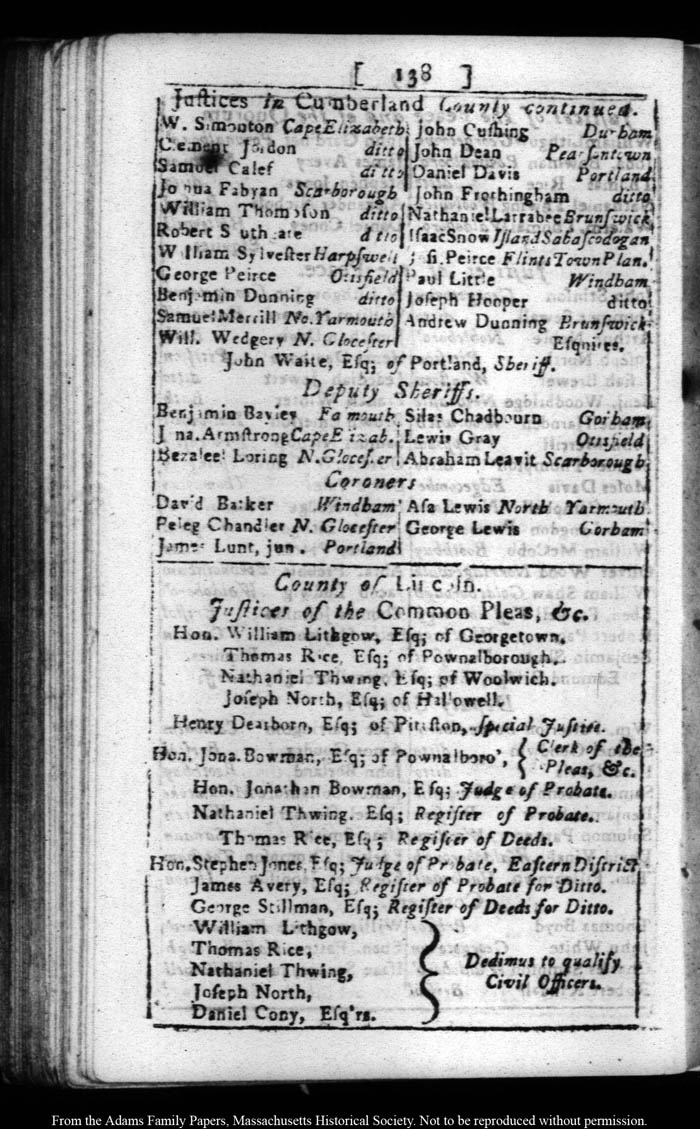 [ 138 ]
Juſtices in Cumberland County continued.
W. Simonton Cape Elizabeth John Cuſhing Durham
Clement Jordon ditto John Dean Pearſontown
Samuel Calef ditto Daniel Davis Portland
Joſhua Fabyan Scarborough John Frothingham ditto
William Thompſon ditto Nathaniel Larrabee Brunſwick
Robert Southgate ditto Iſaac Snow Iſland Sabaſcodogan
William Sylveſter Harpſwell Peirce Flints Town Plan.
George Peirce Otisfield Paul Little Windham
Benjamin Dunning ditto Joſeph Hooper ditto
Samuel Merrill No. Yarmouth Andrew Dunning Brunſwick
Will. Wedgery N. Gloceſter Eſquires.
John Waite, Eſq; of Portland, Sheriff.
Deputy Sheriffs.
Benjamin Bayley Falmouth Silas Chadbourn Gorham
Jona. Armſtrong Cape Elizab. Lewis Gray Otisfield
Bezaleel Loring N. Gloceſter Abraham Leavit Scarborough
Coroners
David Barker Windham Aſa Lewis North Yarmouth
Peleg Chandler N. Gloceſter George Lewis Gorham
James Lunt, jun. Portland
County of Lincoln.
Juſtices of the Common Pleas, &c.
Hon. William Lithgow, Eſq; of Georgetown.
Thomas Rice, Eſq; of Pownalborough.
Nathaniel Thwing, Eſq; of Woolwich.
Joſeph North, Eſq; of Hallowell.
Henry Dearborn, Eſq; of Pittſton, Special Juſtice.
Hon. Jona. Bowman, Eſq; of Pownalboro', { Clerk of the
Pleas, &c.
Hon. Jonathan Bowman, Eſq; Judge of Probate.
Nathaniel Thwing, Eſq; Regiſter of Probate.
Thomas Rice, Eſq; Regiſter of Deeds.
Hon. Stephen Jones, Eſq; Judge of Probate, Eaſtern Diſtrict
James Avery, Eſq; Regiſter of Probate for Ditto.
George Stillman, Eſq; Regiſter of Deeds for Ditto.
William Lithgow,
Thomas Rice,
Nathaniel Thwing,
Joſeph North,
Daniel Cony, Eſq'rs.
} Dedimus to qualify
Civil Officers.
From the Adams Family Papers, Massachusetts Historical Society. Not to be reproduced without permission.